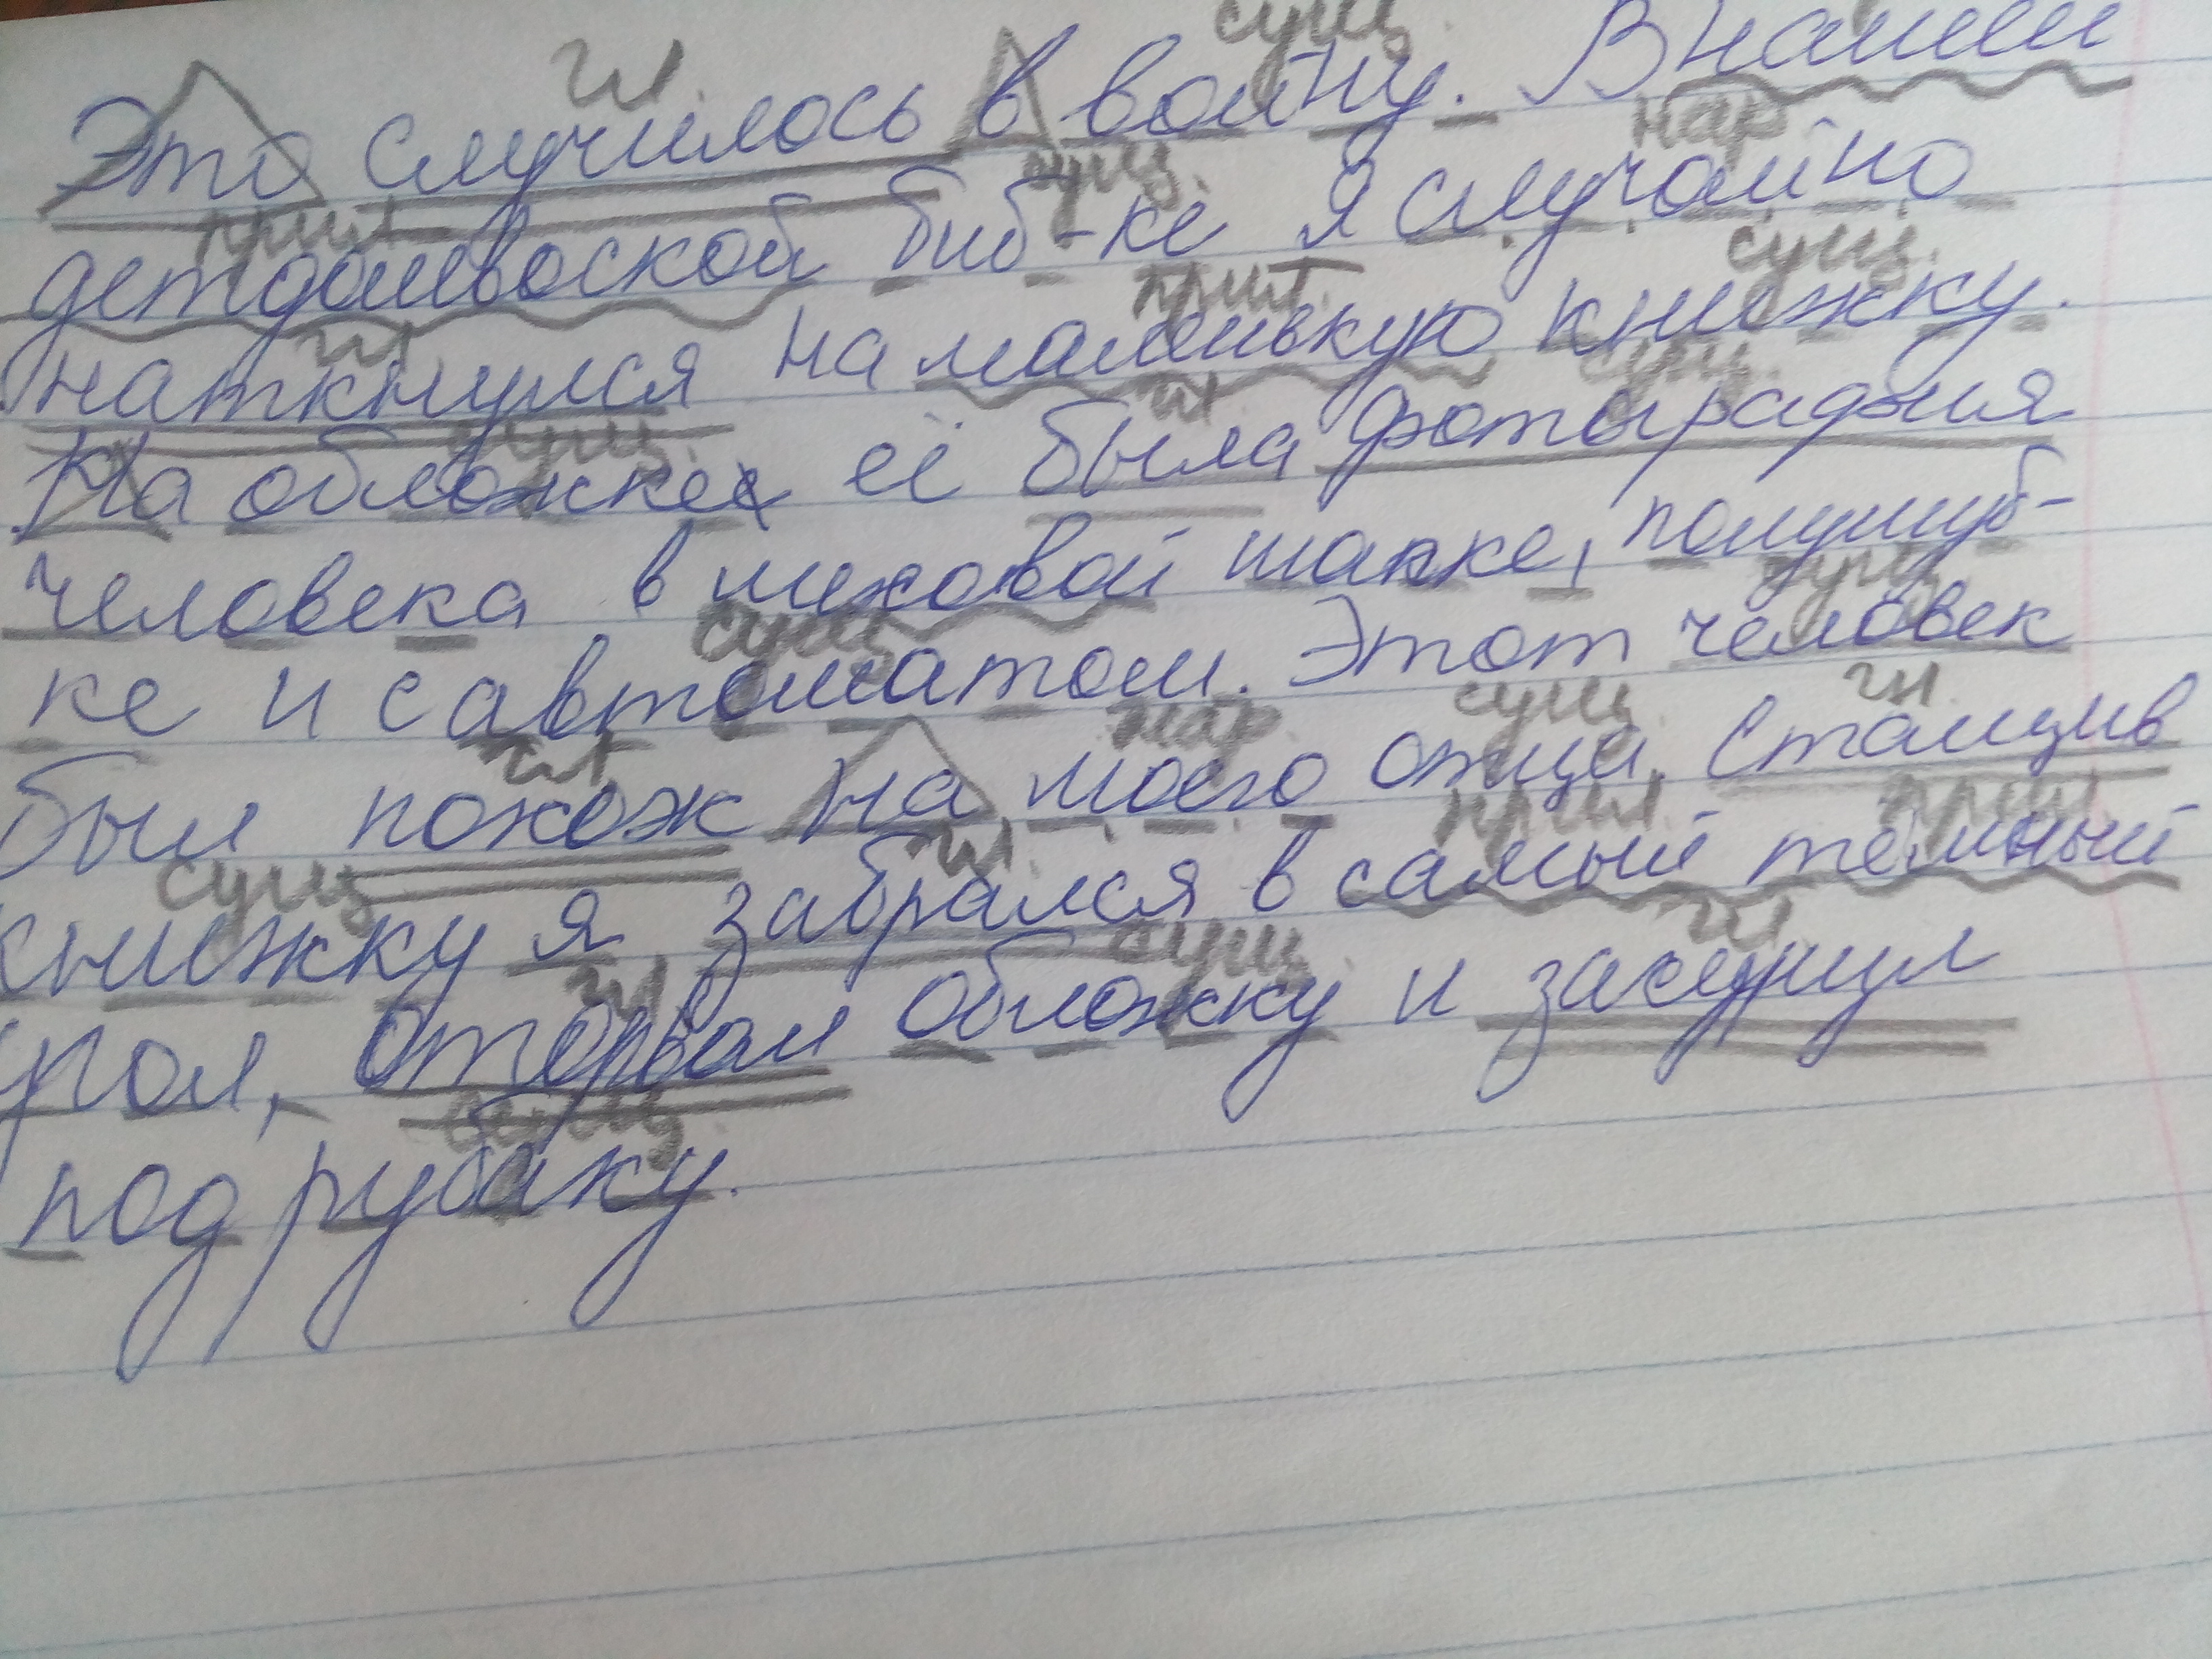 гл. сущ.
Это случилось в войну. В нашей
прил сущ. нар
детдомвоской биб-ке я случайно
гл прил. сущ.
наткнулся на маленькую книжку.
сущ. гл сущ.
На обложке её была фотография
человека в меховой шапке, полушуб-
сущ сущ
ке и с автоматом. Этот человек
гл нар сущ. гл.
был похож на моего отца. Стащив
сущ гл прил прил
книжку я забрался в самый тёмный
гл сущ. гл.
угол, оторвал обложку и засунул
сущ.
под рубаку.